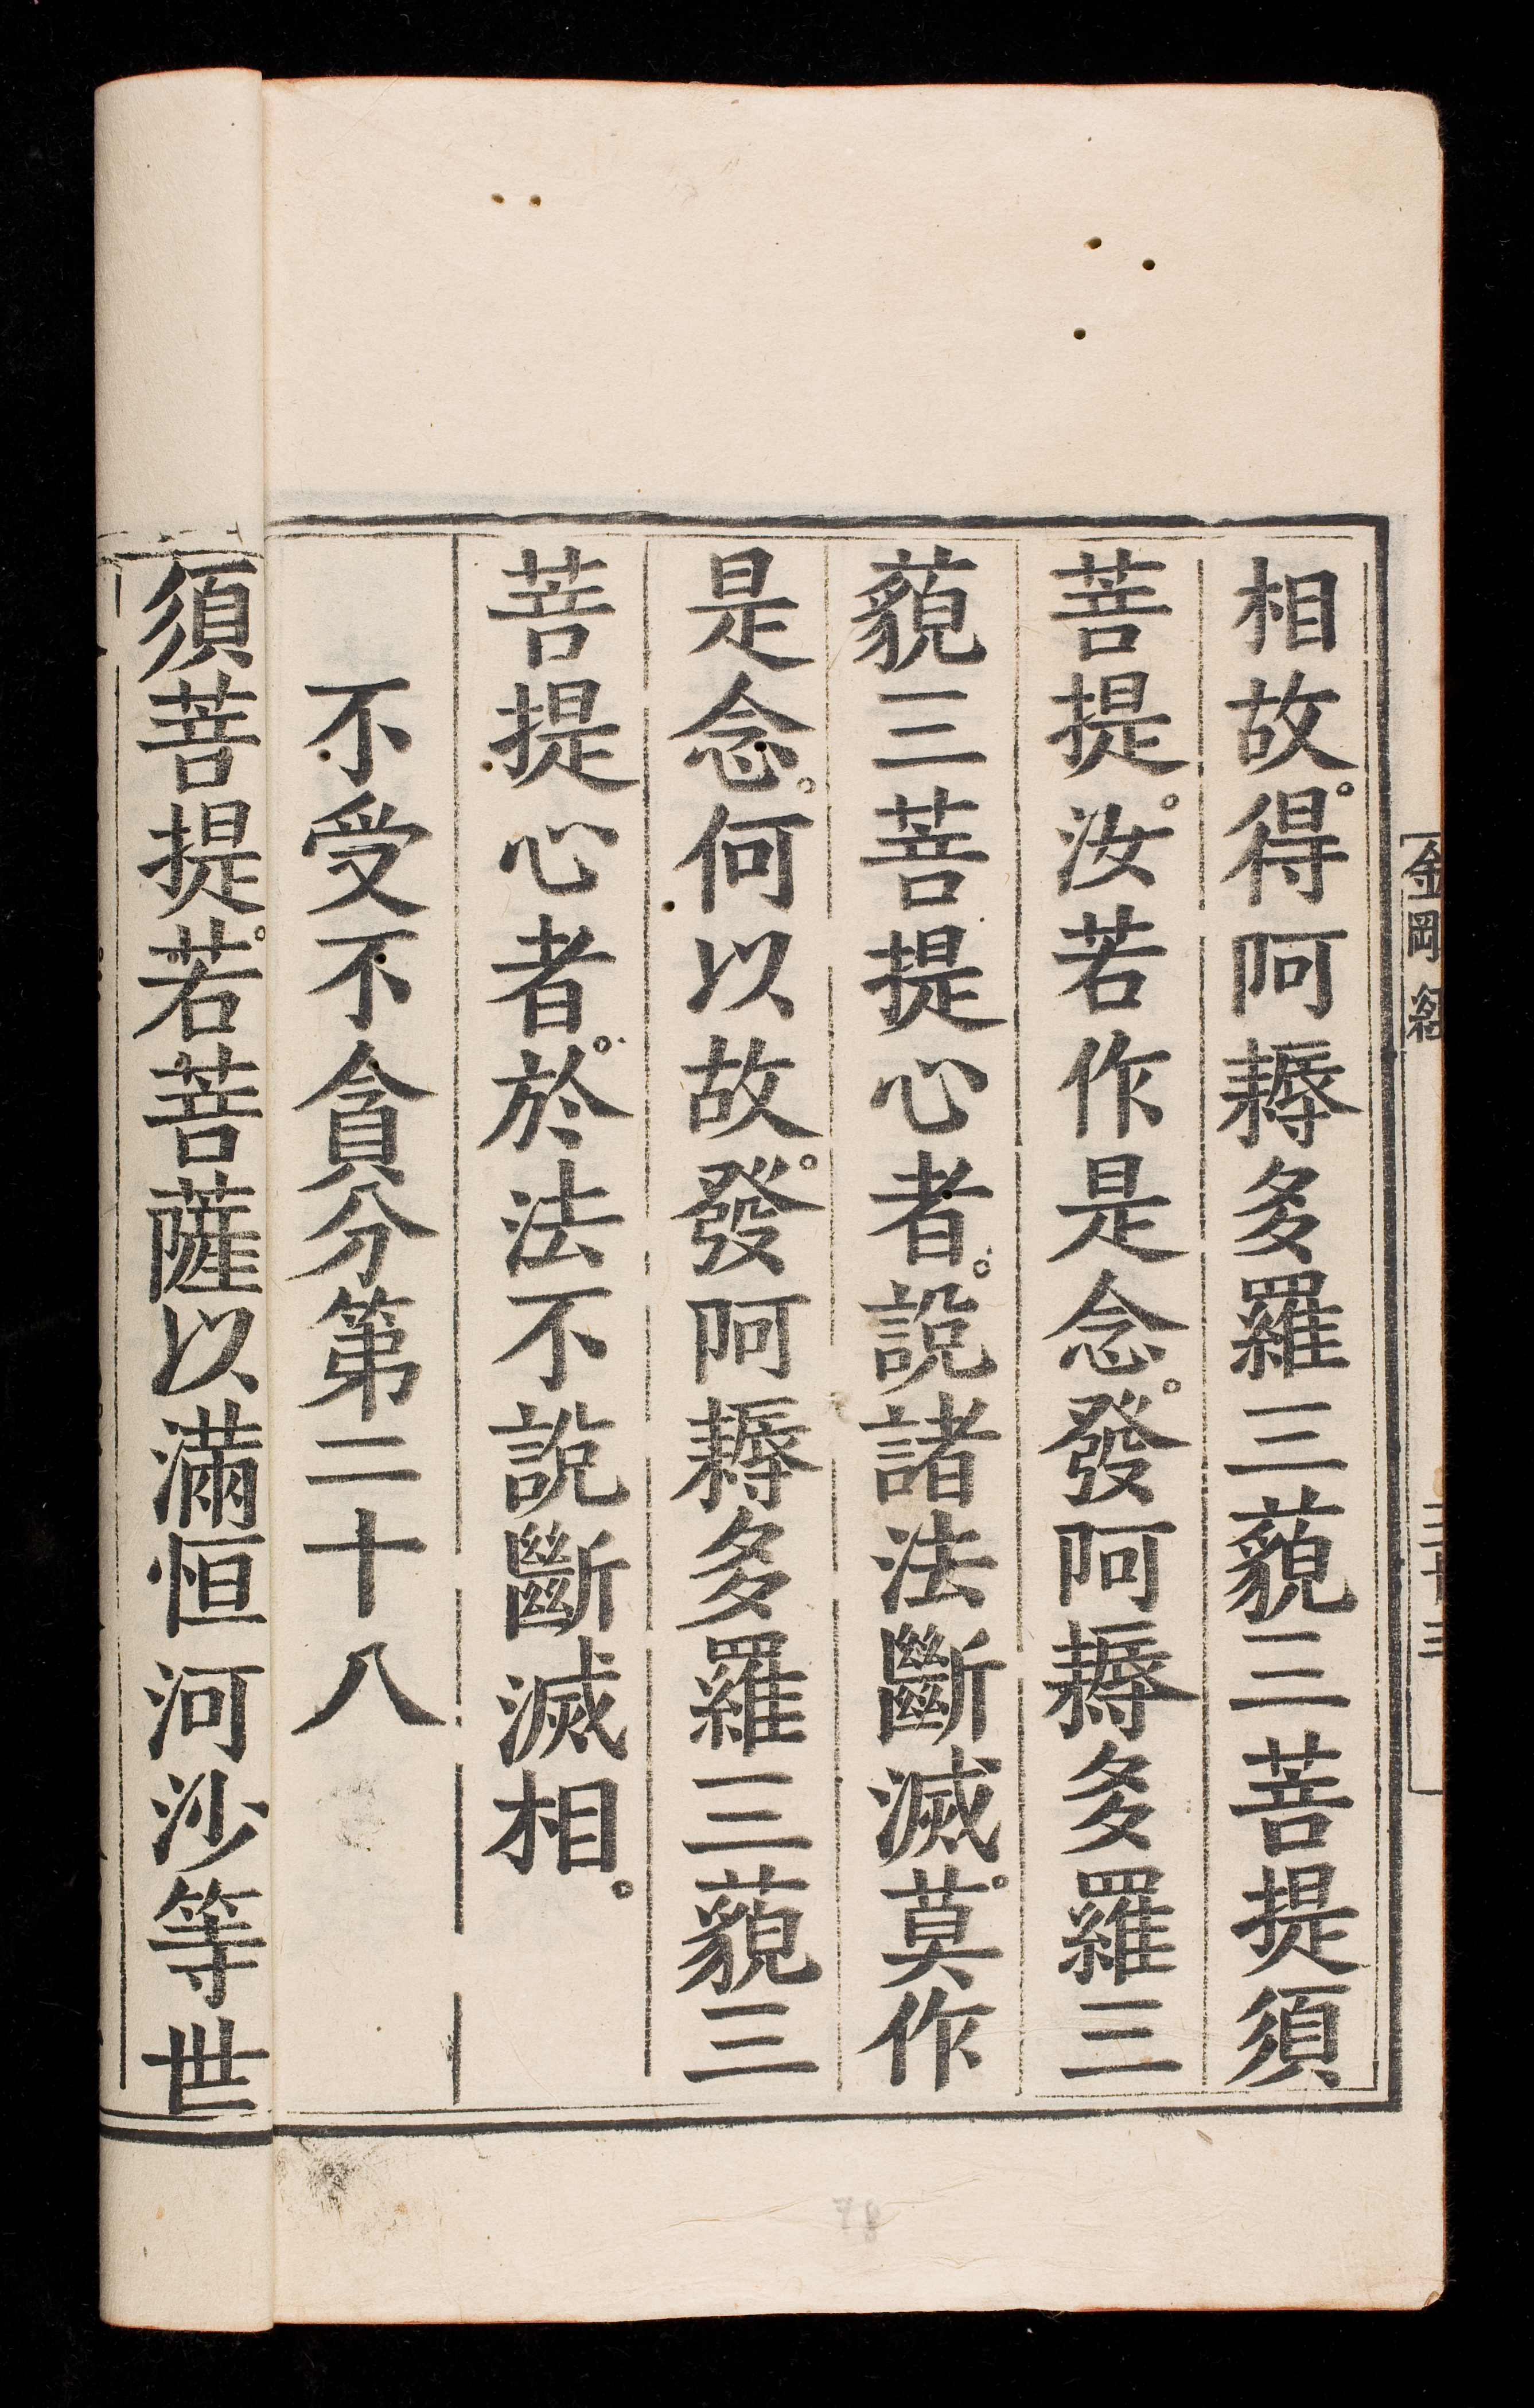 相故。得阿耨多羅三藐三菩提須
菩提。汝若作是念。發阿耨多羅三
藐三菩提心者。說諸法斷滅。莫作
是念。何以故。發阿耨多羅三藐三
菩提心者。於法不說斷滅相。
不受不貪分第二十八
須菩提。若菩薩以滿恒河沙等世
金剛經
三十三